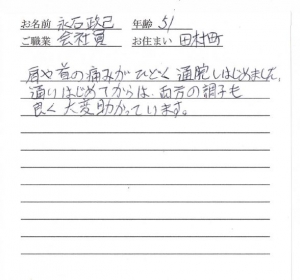 お名前 永石政己 年齢 51
ご職業 会社員 お住まい 田村町
肩や首の痛みがひどく通院しはじめました。
通いはじめてからは、両方の調子も
良く大変助かっています。